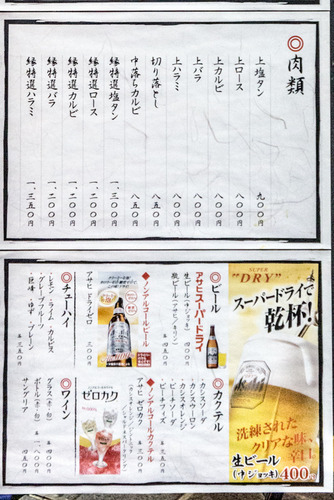 ◎肉類
上塩タン 九〇〇円
上ロース 八〇〇円
上カルビ 八〇〇円
上バラ 八〇〇円
上ハラミ 八〇〇円
切り落とし 八五〇円
中落ちカルビ 八五〇円
縁特選塩タン 一、三〇〇円
縁特選ロース 一、二〇〇円
縁特選カルビ 一、二〇〇円
縁特選バラ 一、二〇〇円
縁特選ハラミ 一、三五〇円
SUPER
"DRY"
スーパードライで
乾杯!
洗練された
クリアな味、
辛口
生ビール
(中ジョッキ) 400円
◎ビール
アサヒスーパードライ
生ビール(中ジョッキ) 四〇〇円
瓶ビール(アサヒ/キリン)
◆ノンアルコールビール
アサヒ ドライゼロ 三〇〇円
◎チューハイ
・レモン・ライム・カルピス
・グレープフルーツ
・巨峰・ゆず・プレーン
各 三五〇円
◎カクテル
・カシスソーダ
・カシスウーロン
・カシスオレンジ
・ピーチソーダ
・ピーチフィズ
各 三五〇円
◆ノンアルコールカクテル
アサヒ ゼロカク
ゼロカク
◎ワイン
グラス(赤・白)
ボトル(赤・白) 一、八〇〇円
サングリア 四五〇円